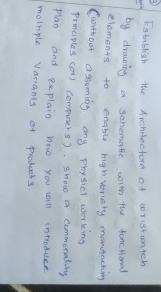 Establish the Architecture of a wristwatch
by drawing a schematic with the functional
elements to enable high variety manufacturing
(without assuming any physical working
principles (or) components). Show a commonality
plan and explain how you will introduce
multiple variants of products.